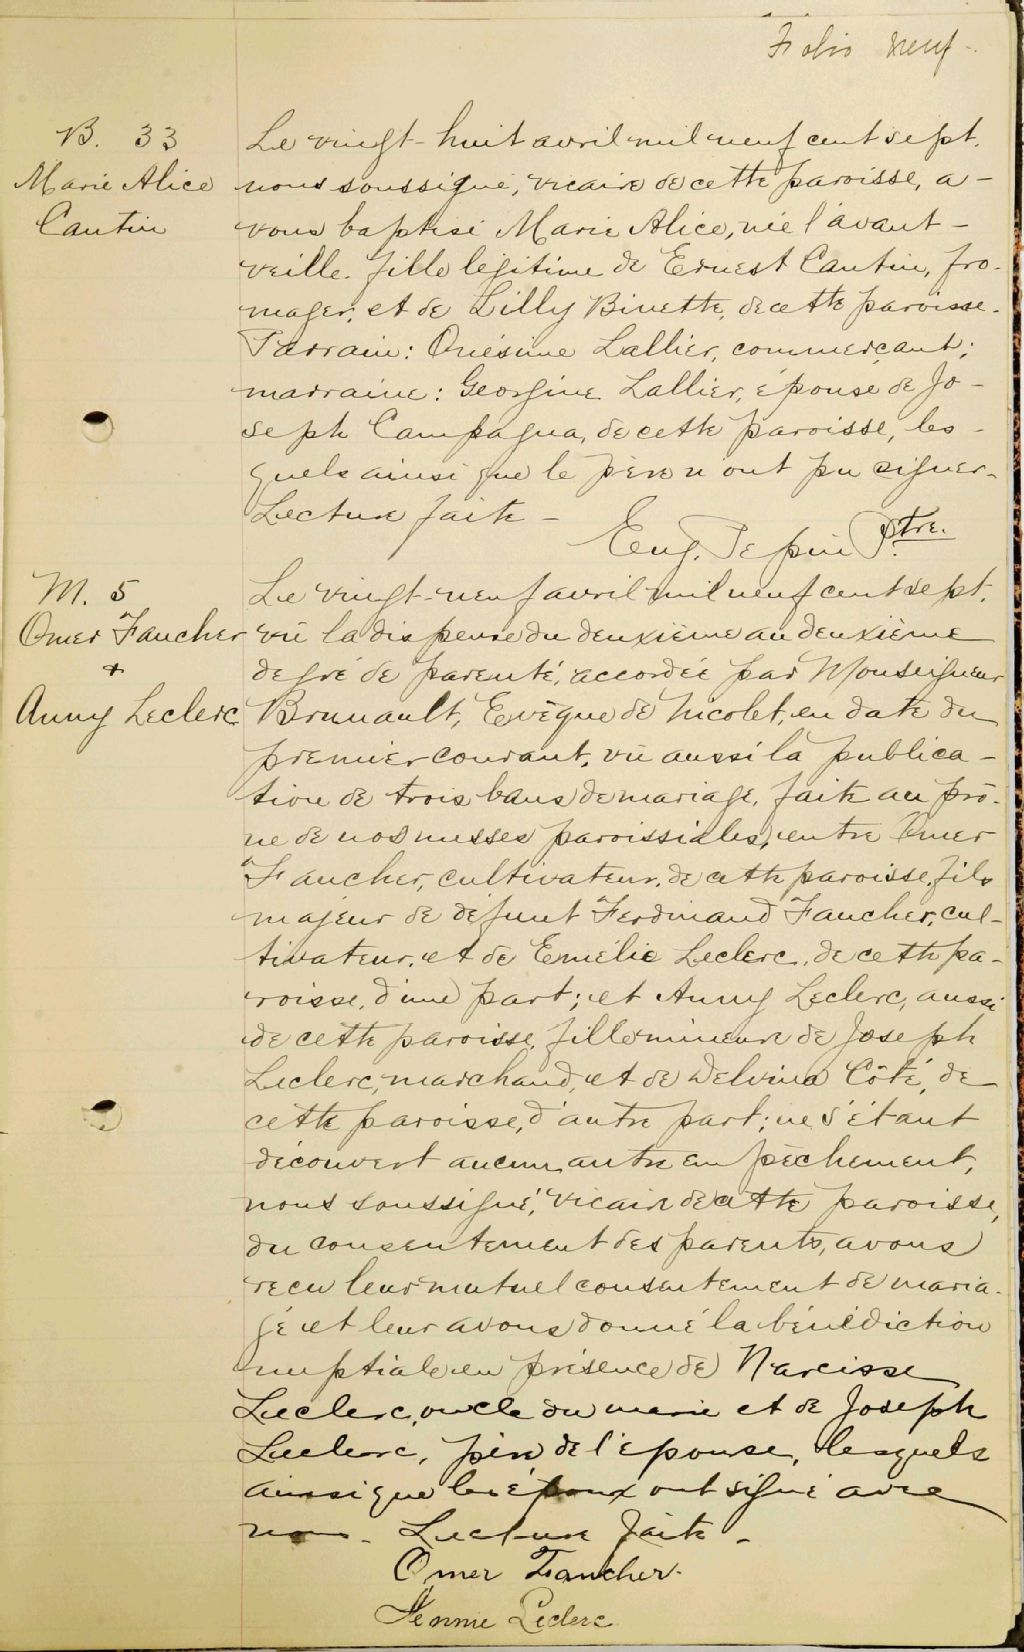 Folio neuf -
B. 33
Marie Alice
Cantin
Le vingt-huit avril mil neuf cent sept,
nous soussigné, vicaire de cette paroisse, a-
vons baptisé Marie Alice, née l'avant-
veille. fille légitime de Ernest Cantin, fro-
mager, et de Lilly Binette, de cette paroisse.
Parrain: Onésime Lallier, commerçant;
marraine: Georgine Lallier, épouse de Jo-
seph Campagna, de cette paroisse, les-
quels ainsi que le père n'ont pu signer.
Lecture faite -
Eug. Pepin Ptre.
M. 5
Omer Faucher
+
Anny Leclerc
Le vingt-neuf avril mil neuf cent sept,
vu la dispense du deuxième au deuxième
degré de parenté, accordée par Monseigneur
Brunault, Evêque de Nicolet, en date du
premier courant, vu aussi la publica-
tion de trois bans de mariage, faite au prô-
ne de nos messes paroissiales, entre Omer
Faucher, cultivateur, de cette paroisse, fils
majeur de défunt Ferdinand Faucher, cul-
tivateur, et de Emélie Leclerc, de cette pa-
roisse, d'une part; et Anny Leclerc, aussi
de cette paroisse, fille mineure de Joseph
Leclerc, marchand, et de Delvina Côté, de
cette paroisse, d'autre part; ne s'étant
découvert aucun autre empêchement,
nous soussigné, vicaire de cette paroisse,
du consentement des parents, avons
reçu leur mutuel consentement de maria-
ge et leur avons donné la bénédiction
nuptiale en présence de Narcisse
Leclerc, oncle du marié et de Joseph
Leclerc, père de l'épouse, lesquels
ainsi que les époux ont signé avec
nous. Lecture faite -
Omer Faucher.
Jennie Leclerc